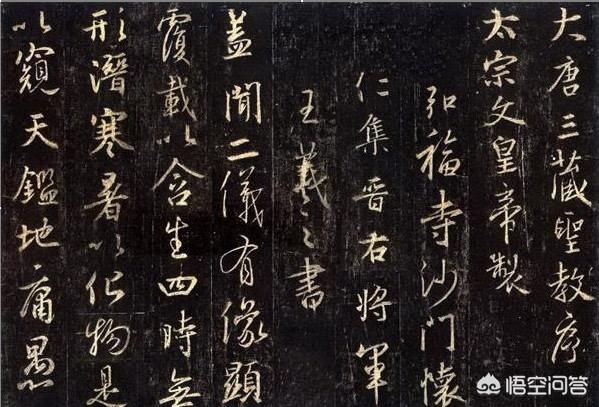 大唐三藏聖教序
太宗文皇帝製
弘福寺沙門懷
仁集晋右將軍
王羲之書
蓋聞二儀有像顯
覆載以含生四時無
形潛寒暑以化物是
以窺天鑑地庸愚
悟空问答